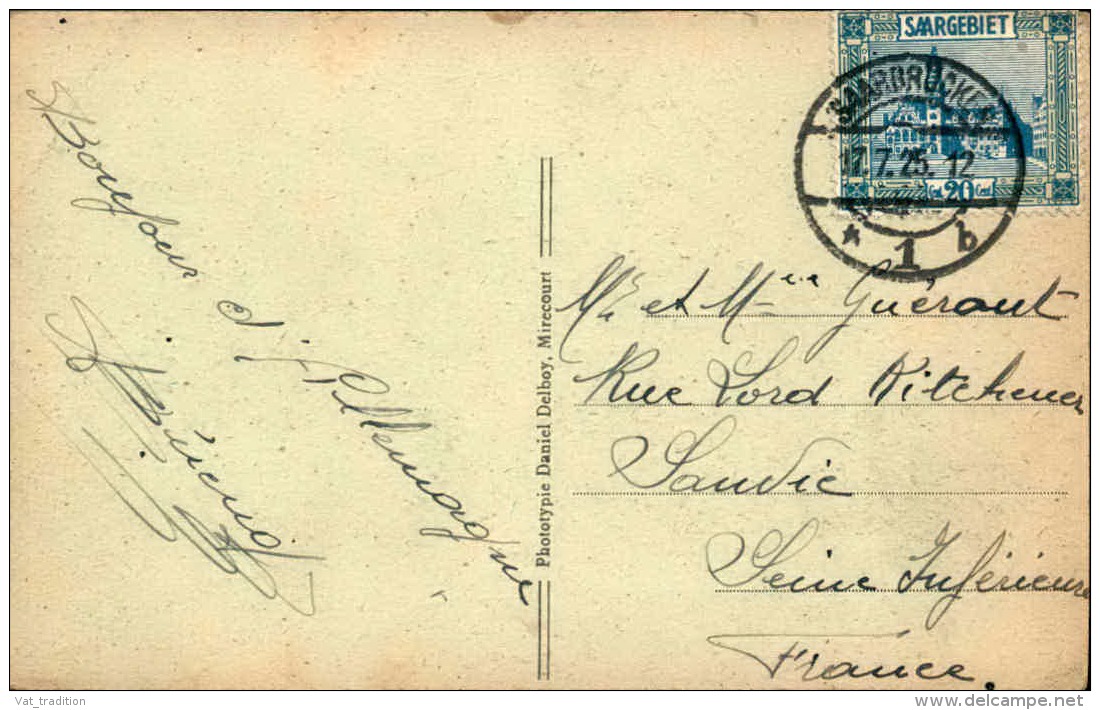 SAARGEBIET
SAARBRÜCKEN
17.7.25. 12
Cent. 20 Cent.
* 1 b
Bonjour
d'Allemagne
Phototypie Daniel Delboy, Mirecourt
Mr et Mme Guérout
Rue Lord Kitchener
Sanvic
Seine Inférieure
France.
Vat_tradition
delcampe.net